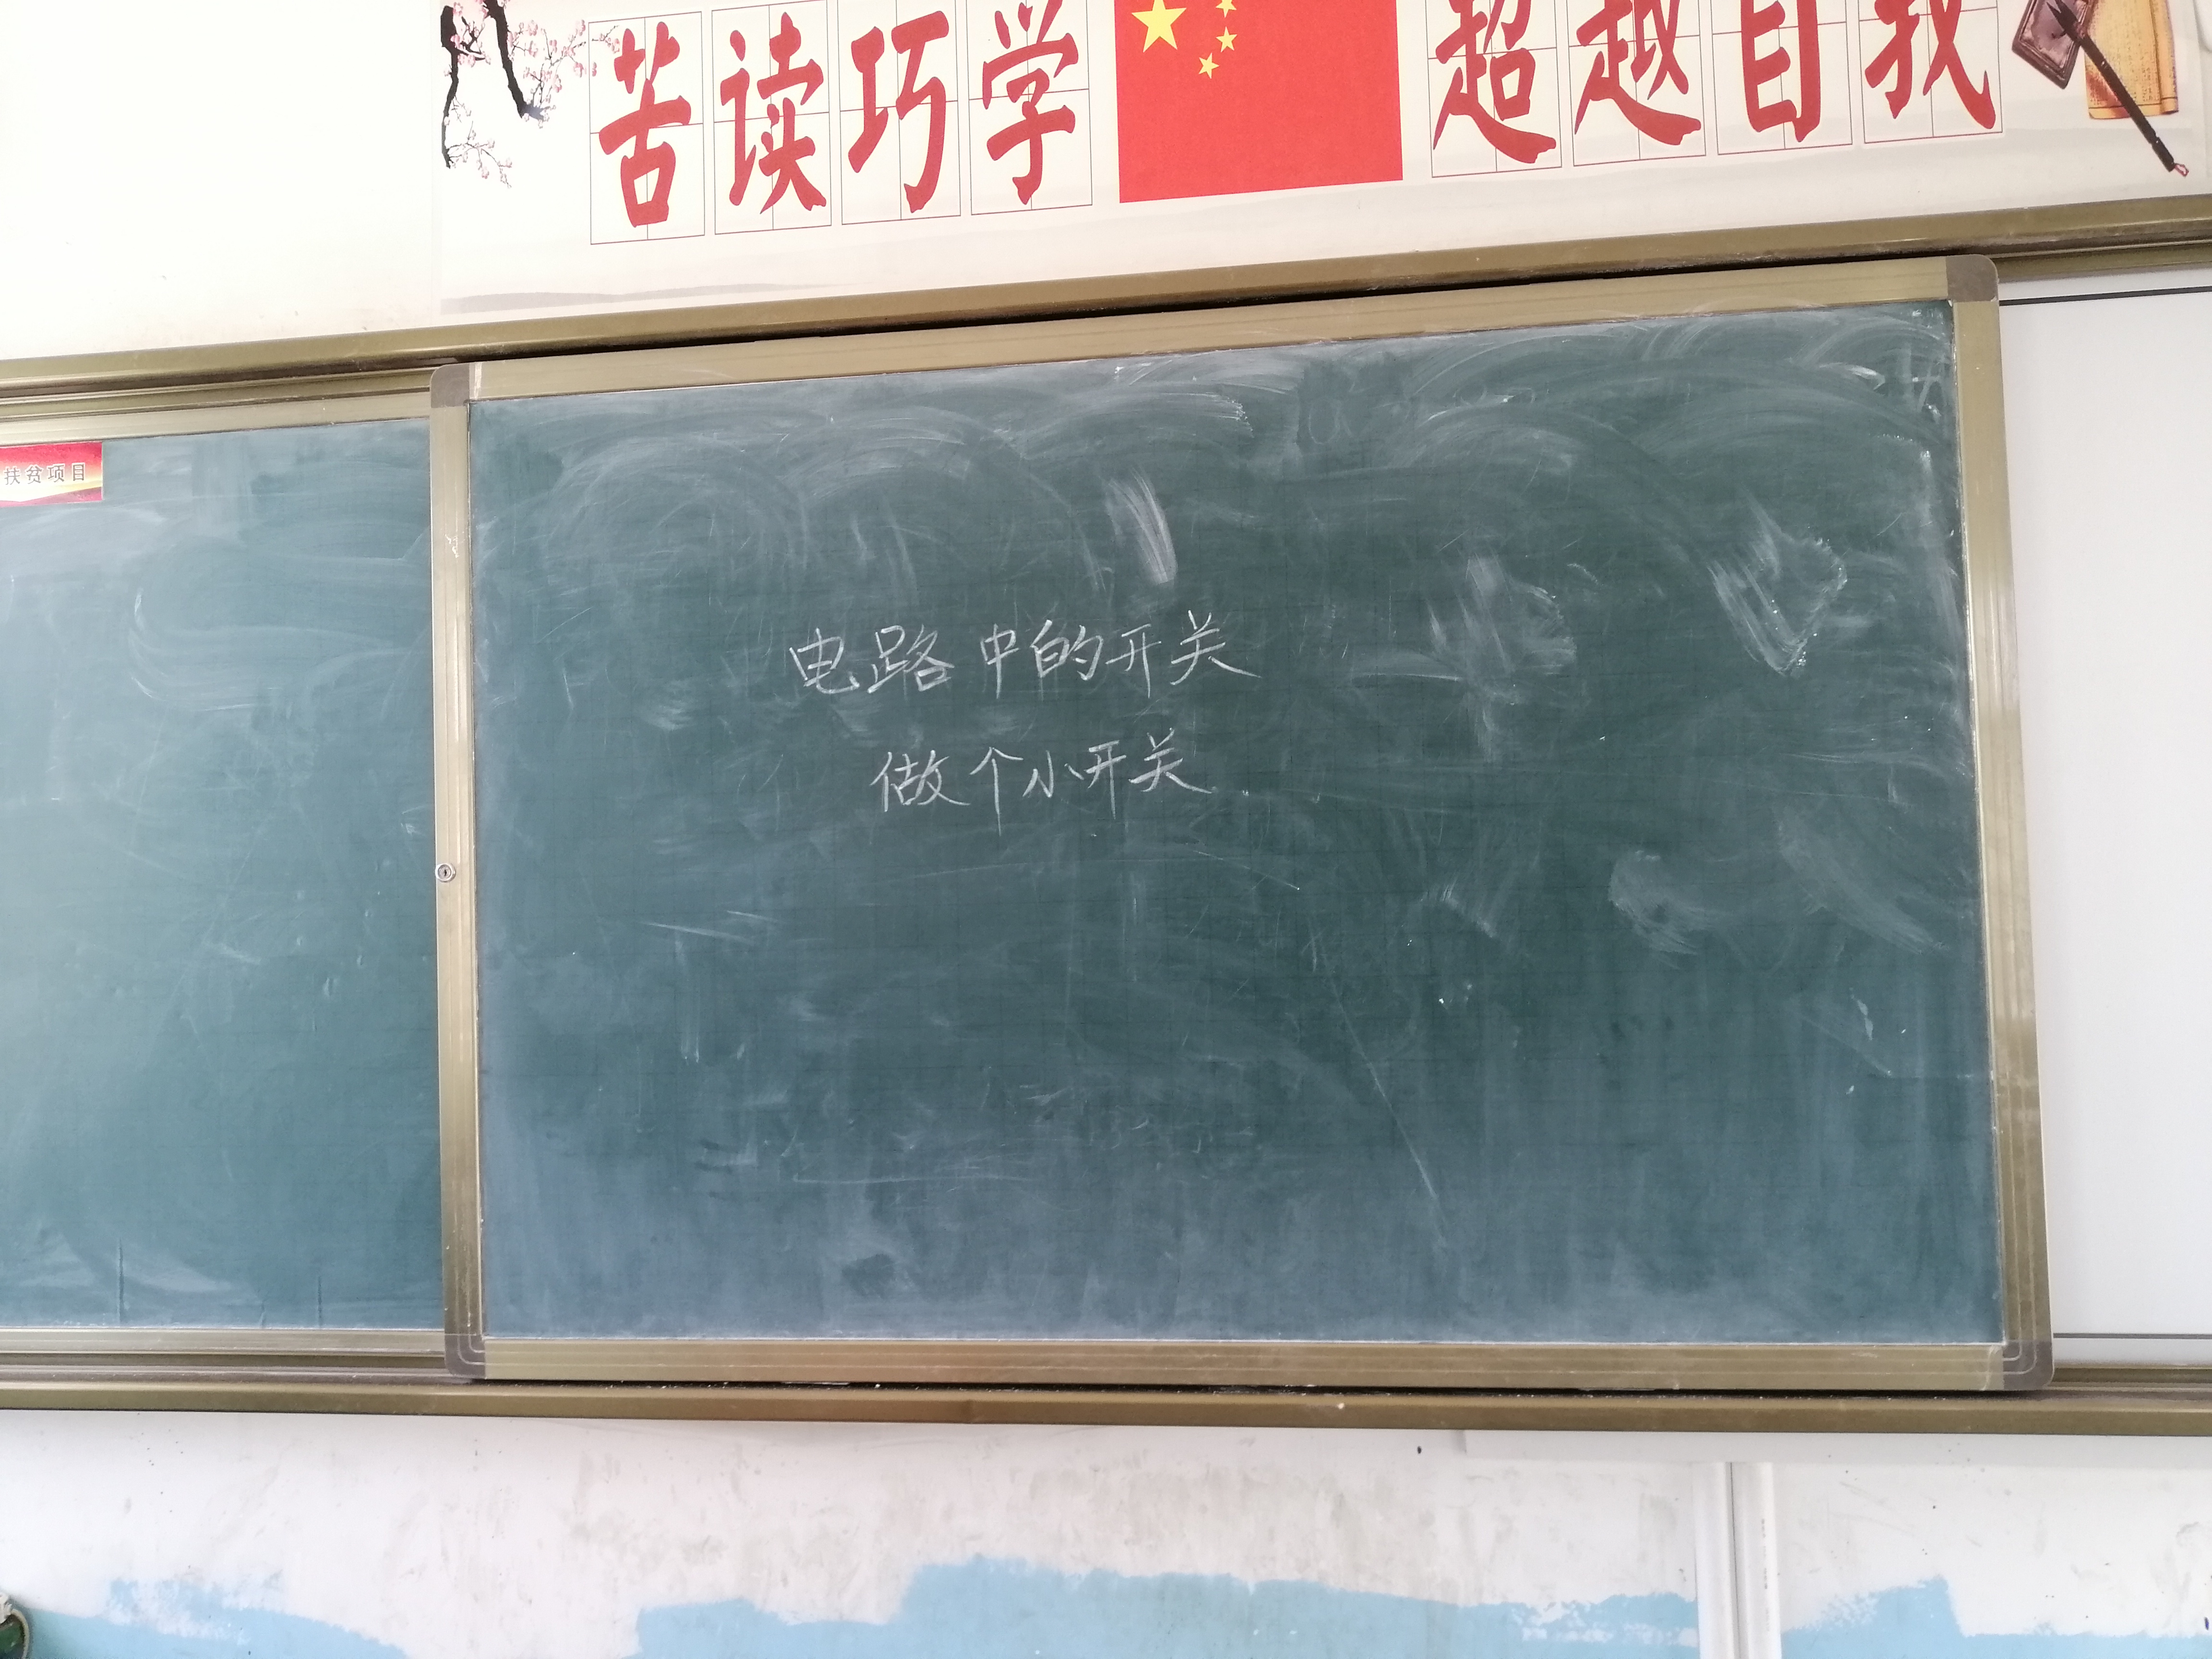 苦读巧学 超越自我
扶贫项目
电路中的开关
做个小开关